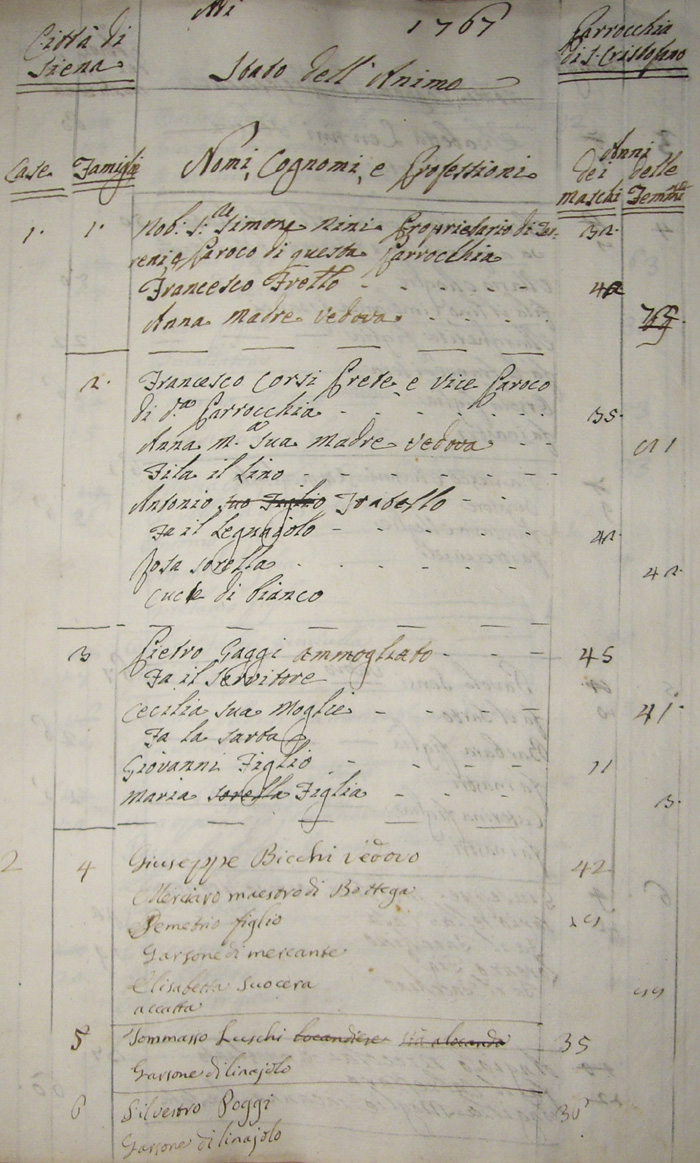 Città di Siena
Adi 1767
Parrocchia di S. Cristofano
Stato dell' Anime
Case Famiglie Nomi, Cognomi, e Professioni Anni dei Maschi delle Femine
1. 1. Nob: S.re Simone Nini Proprietario di Ter- 32
reni, e Paroco di questa Parrocchia
Francesco Fretto - - - - 42
Anna Madre Vedova - - - -
2. Francesco Corsi Prete, e Vice Paroco
di d.a Parrocchia - - - - 35.
Anna M.a sua Madre Vedova - -
Fila il Lino - - - -
Antonio suo Figlio Fratello - -
Fa il Legnajolo - - - - 42.
Rosa sorella - - - - 42.
Cuce di bianco
3 Pietro Gaggi ammogliato - - - 45
Fa il Servitore
Cecilia sua Moglie - - - - 41.
Fa la sarta
Giovanni Figlio - - - - 11
Maria sorella Figlia - - - - 3.
2 4 Giuseppe Bicchi Vedovo 42
Merciaro maestro di Bottega
Demetrio figlio 19
Garsone di mercante
Elisabetta Suocera
accatta
5 Tommasso Luschi locandiere sta a locanda 35
Garsone di linajolo
6 Silvestro Poggi 30
Garsone di linajolo